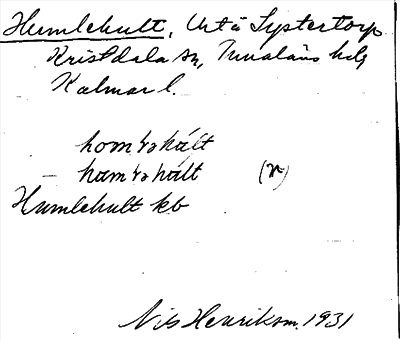 Humlehult, Urt å Systertorp
Kristdala sn, Tunaläns hd
Kalmar l.
homləhált
— hamləhált (r)
Humlehult kb
Nils Henrikson. 1931